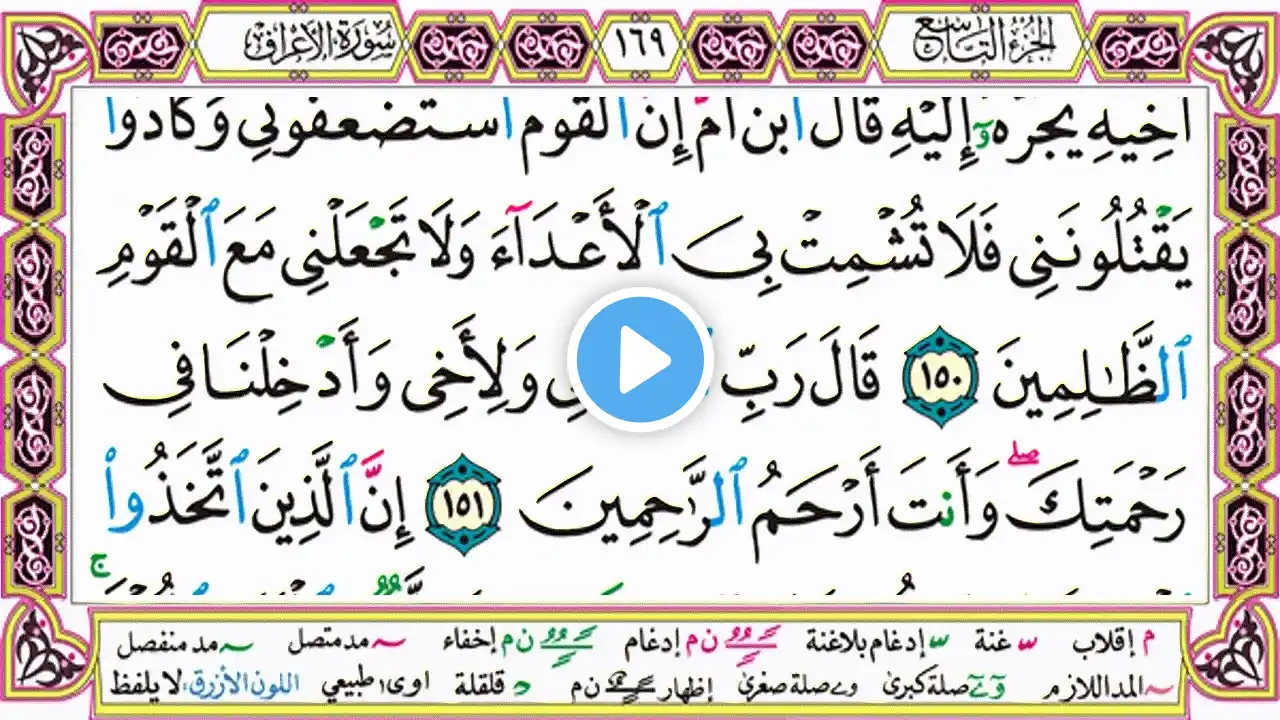 الجزء التاسع ١٦٩ سورة الأعراف
أَخِيهِ يَجُرُّهُۥٓ إِلَيْهِ قَالَ ٱبْنَ أُمَّ إِنَّ ٱلْقَوْمَ ٱسْتَضْعَفُونِى وَكَادُوا۟
يَقْتُلُونَنِى فَلَا تُشْمِتْ بِىَ ٱلْأَعْدَآءَ وَلَا تَجْعَلْنِى مَعَ ٱلْقَوْمِ
ٱلظَّـٰلِمِينَ ١٥٠ قَالَ رَبِّ وَلِأَخِى وَأَدْخِلْنَا فِى
رَحْمَتِكَ ۖ وَأَنتَ أَرْحَمُ ٱلرَّٰحِمِينَ ١٥١ إِنَّ ٱلَّذِينَ ٱتَّخَذُوا۟
م إقلاب س غنة س إدغام بلاغنة ن م إدغام ن م إخفاء ~ مد متصل ~ مد منفصل
~ المد اللازم وے صلة كبرى وے صلة صغرى إظهار ن م د قلقلة اوى طبيعي اللون الأزرق: لا يلفظ